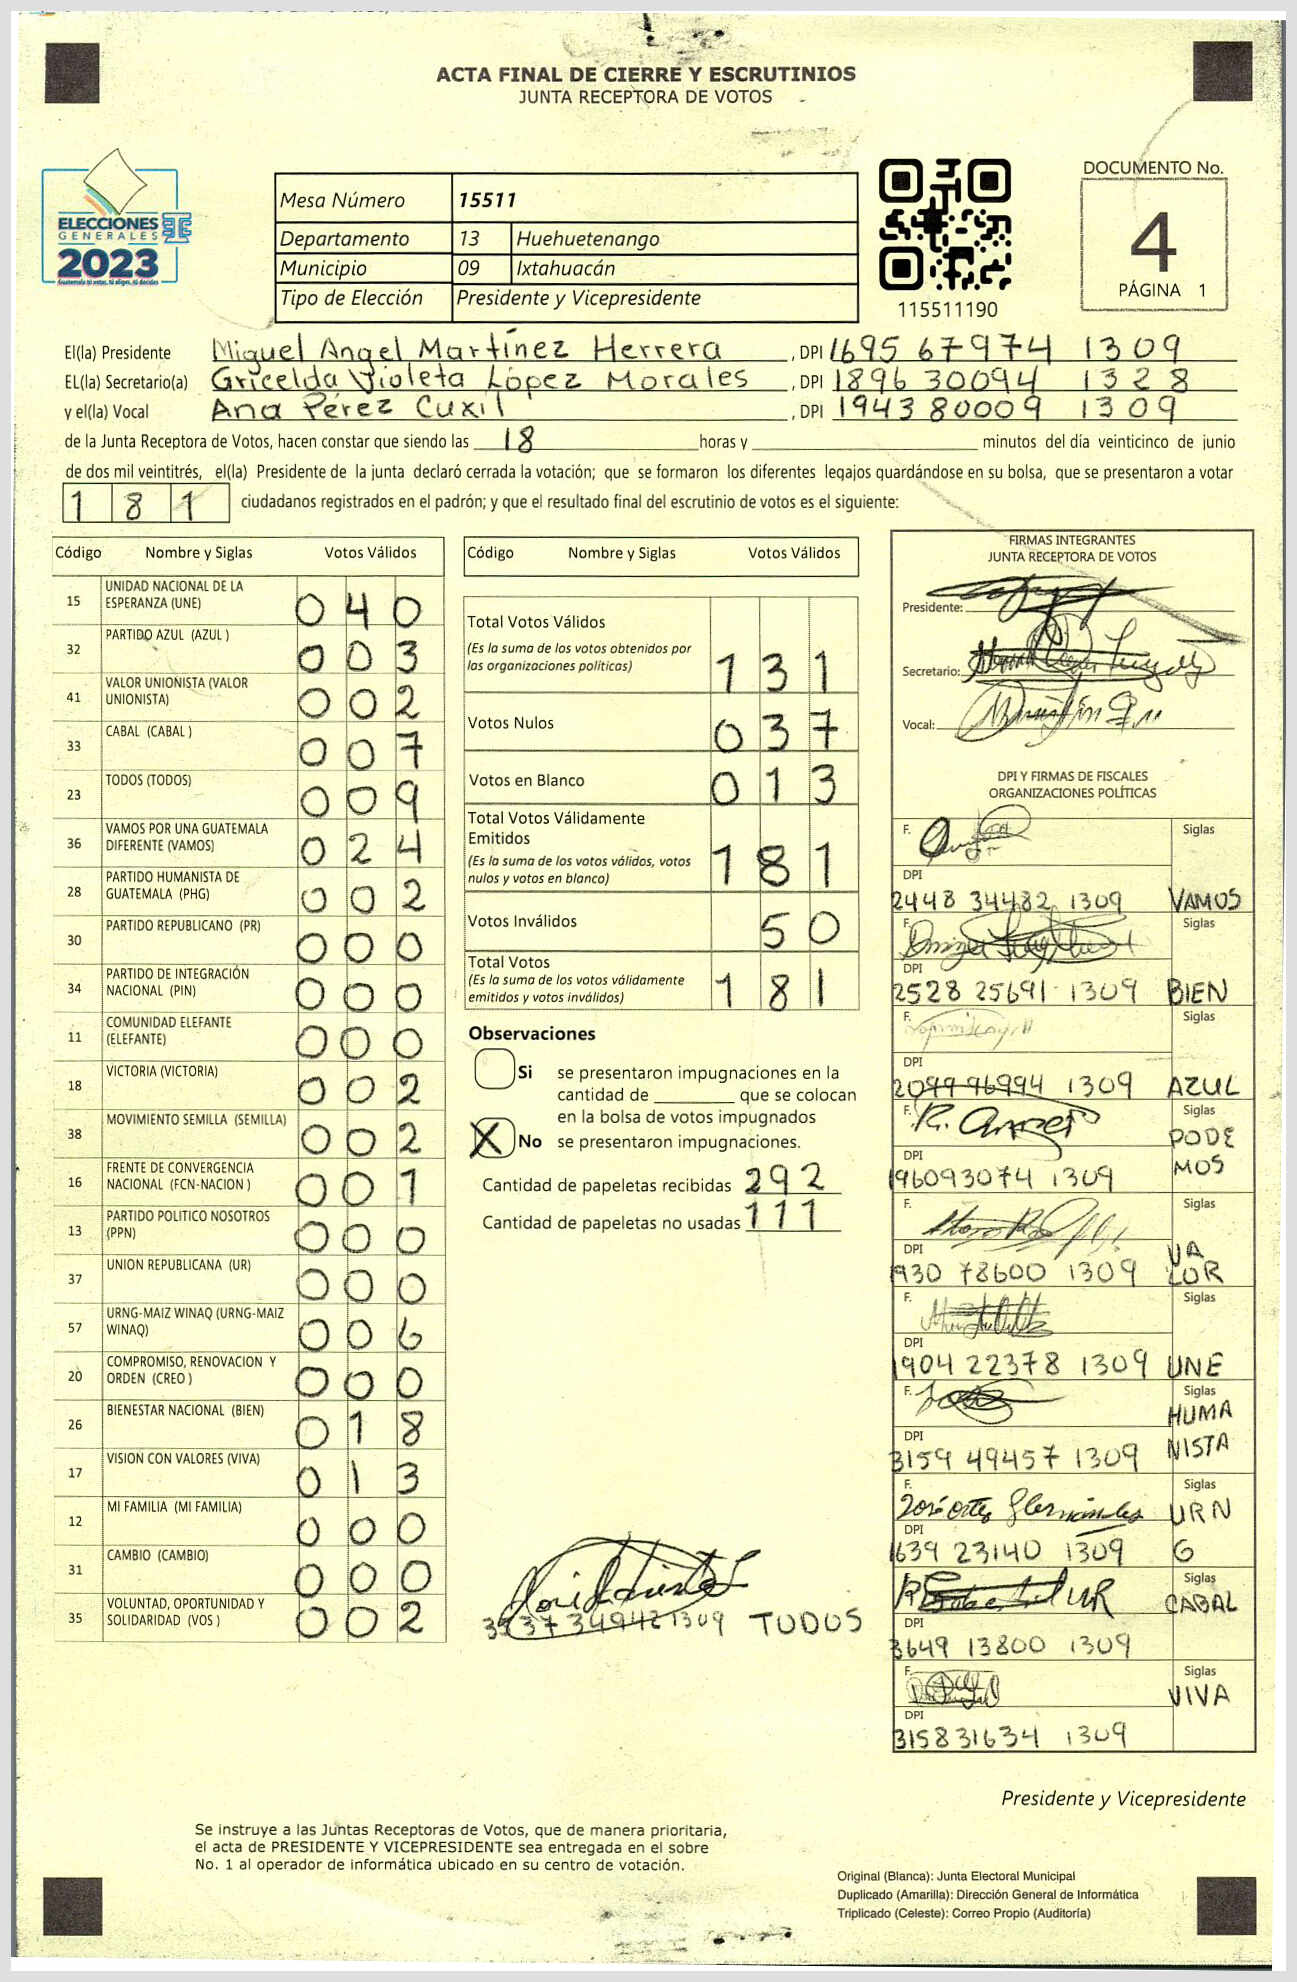 ACTA FINAL DE CIERRE Y ESCRUTINIOS
JUNTA RECEPTORA DE VOTOS
ELECCIONES
GENERALES
2023
Mesa Número 15511
Departamento 13 Huehuetenango
Municipio 09 Ixtahuacán
Tipo de Elección Presidente y Vicepresidente
115511190
DOCUMENTO No.
4
PÁGINA 1
El(la) Presidente Miguel Angel Martínez Herrera , DPI 1695 67974 1309
EL(la) Secretario(a) Gricelda Violeta López Morales , DPI 1896 30094 1328
y el(la) Vocal Ana Pérez Cuxil , DPI 1943 80009 1309
de la Junta Receptora de Votos, hacen constar que siendo las 18 horas y minutos del día veinticinco de junio
de dos mil veintitrés, el(la) Presidente de la junta declaró cerrada la votación; que se formaron los diferentes legajos guardándose en su bolsa, que se presentaron a votar
181 ciudadanos registrados en el padrón; y que el resultado final del escrutinio de votos es el siguiente:
Código Nombre y Siglas Votos Válidos
15 UNIDAD NACIONAL DE LA ESPERANZA (UNE) 040
32 PARTIDO AZUL (AZUL ) 003
41 VALOR UNIONISTA (VALOR UNIONISTA) 002
33 CABAL (CABAL ) 007
23 TODOS (TODOS) 009
36 VAMOS POR UNA GUATEMALA DIFERENTE (VAMOS) 024
28 PARTIDO HUMANISTA DE GUATEMALA (PHG) 002
30 PARTIDO REPUBLICANO (PR) 000
34 PARTIDO DE INTEGRACIÓN NACIONAL (PIN) 000
11 COMUNIDAD ELEFANTE (ELEFANTE) 000
18 VICTORIA (VICTORIA) 002
38 MOVIMIENTO SEMILLA (SEMILLA) 002
16 FRENTE DE CONVERGENCIA NACIONAL (FCN-NACION ) 001
13 PARTIDO POLITICO NOSOTROS (PPN) 000
37 UNION REPUBLICANA (UR) 000
57 URNG-MAIZ WINAQ (URNG-MAIZ WINAQ) 006
20 COMPROMISO, RENOVACION Y ORDEN (CREO ) 000
26 BIENESTAR NACIONAL (BIEN) 018
17 VISION CON VALORES (VIVA) 013
12 MI FAMILIA (MI FAMILIA) 000
31 CAMBIO (CAMBIO) 000
35 VOLUNTAD, OPORTUNIDAD Y SOLIDARIDAD (VOS ) 002
Código Nombre y Siglas Votos Válidos
Total Votos Válidos 131
(Es la suma de los votos obtenidos por
las organizaciones politicas)
Votos Nulos 037
Votos en Blanco 013
Total Votos Válidamente
Emitidos 181
(Es la suma de los votos válidos, votos
nulos y votos en blanco)
Votos Inválidos 50
Total Votos 181
(Es la suma de los votos válidamente
emitidos y votos inválidos)
Observaciones
Si se presentaron impugnaciones en la
cantidad de ________ que se colocan
en la bolsa de votos impugnados
X No se presentaron impugnaciones.
Cantidad de papeletas recibidas 292
Cantidad de papeletas no usadas 111
1309 TODOS
FIRMAS INTEGRANTES
JUNTA RECEPTORA DE VOTOS
Presidente:
Secretario:
Vocal:
DPI Y FIRMAS DE FISCALES
ORGANIZACIONES POLÍTICAS
F. Siglas
DPI
2448 34482 1309 VAMOS
F. Siglas
DPI
2528 25691 1309 BIEN
F. Siglas
DPI
2099 96994 1309 AZUL
F. Siglas
DPI PODEMOS
196093074 1309
F. Siglas
DPI VALOR
1930 78600 1309
F. Siglas
DPI
1904 22378 1309 UNE
F. Siglas
DPI HUMANISTA
3159 49457 1309
F. Siglas
DPI URNG
1639 23140 1309
F. Siglas
DPI CABAL
3649 13800 1309
F. Siglas
DPI VIVA
315831634 1309
Presidente y Vicepresidente
Se instruye a las Juntas Receptoras de Votos, que de manera prioritaria,
el acta de PRESIDENTE Y VICEPRESIDENTE sea entregada en el sobre
No. 1 al operador de informática ubicado en su centro de votación.
Original (Blanca): Junta Electoral Municipal
Duplicado (Amarilla): Dirección General de Informática
Triplicado (Celeste): Correo Propio (Auditoría)